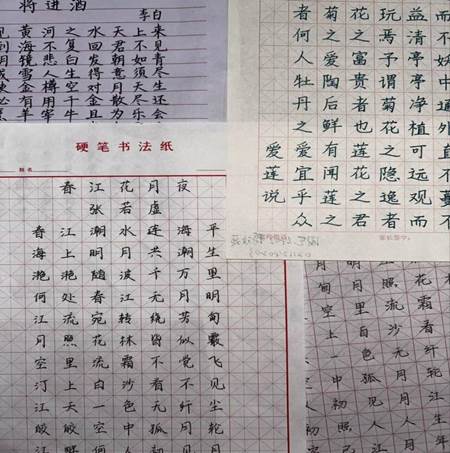 将进酒
李白
见黄河之水天上来
到海不复回君不见
明镜悲白发朝如青
成雪人生得意须尽
樽空对月天生
必有用千金散尽还
羊宰牛且为乐会
硬笔书法纸
姓名
春江花月夜
张若虚
春江潮水连海平
海上明月共潮生
滟滟随波千万里
何处春江无月明
江流宛转绕芳甸
月照花林皆似霰
空里流霜不觉飞
汀上白沙看不见
江天一色无纤尘
皎皎空中孤月轮
而不妖中通外直不蔓
益清亭亭净植可远观
玩焉予谓菊花之隐逸者
花之富贵者也莲之君
菊之爱陶后鲜有闻莲之
者何人牡丹之爱宜乎众
爱莲说
月照花
空里流霜
上白沙看
一色无纤
中孤月轮
初见月江
照人人生